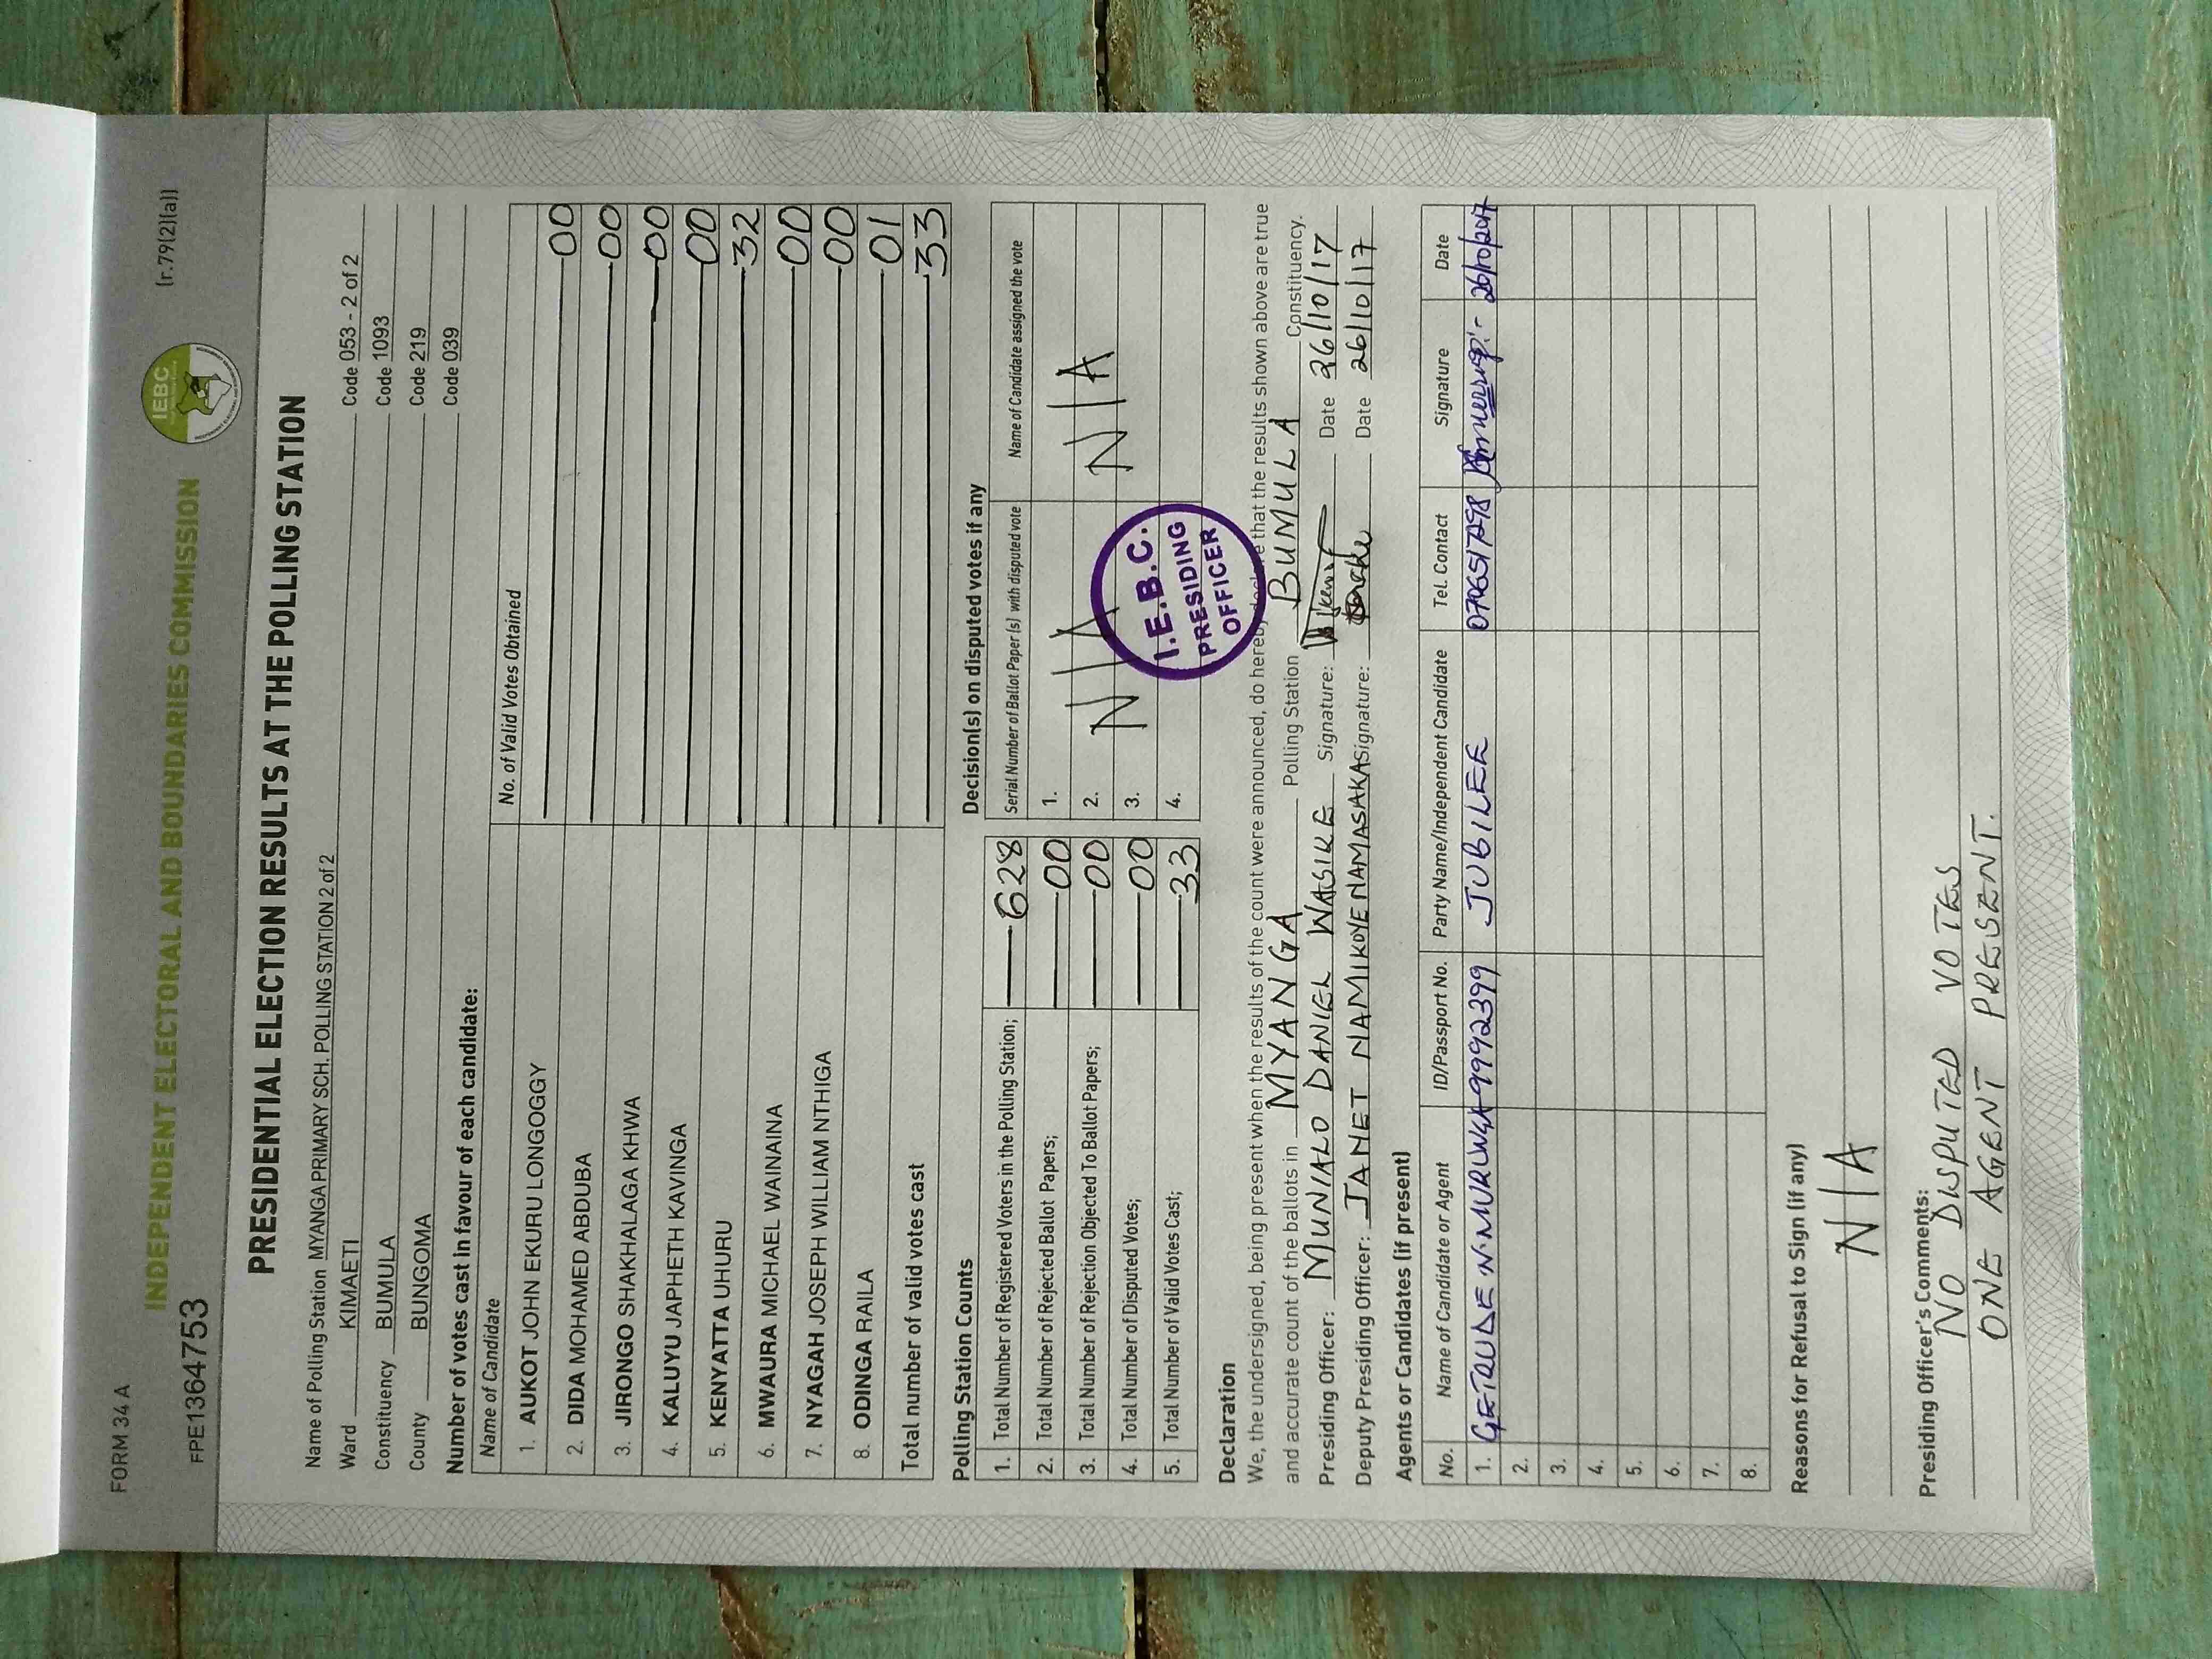 FORM 34 A
(r.79(2)(a))
INDEPENDENT ELECTORAL AND BOUNDARIES COMMISSION
IEBC
FPE1364753
PRESIDENTIAL ELECTION RESULTS AT THE POLLING STATION
Name of Polling Station MYANGA PRIMARY SCH. POLLING STATION 2 of 2 Code 053 - 2 of 2
Ward KIMAETI Code 1093
Constituency BUMULA Code 219
County BUNGOMA Code 039
Number of votes cast in favour of each candidate:
Name of Candidate No. of Valid Votes Obtained
1. AUKOT JOHN EKURU LONGOGGY 00
2. DIDA MOHAMED ABDUBA 00
3. JIRONGO SHAKHALAGA KHWA 00
4. KALUYU JAPHETH KAVINGA 00
5. KENYATTA UHURU 32
6. MWAURA MICHAEL WAINAINA 00
7. NYAGAH JOSEPH WILLIAM NTHIGA 00
8. ODINGA RAILA 01
Total number of valid votes cast 33
Polling Station Counts
1. Total Number of Registered Voters in the Polling Station; 628
2. Total Number of Rejected Ballot Papers; 00
3. Total Number of Rejection Objected To Ballot Papers; 00
4. Total Number of Disputed Votes; 00
5. Total Number of Valid Votes Cast; 33
Decision(s) on disputed votes if any
Serial Number of Ballot Paper (s) with disputed vote Name of Candidate assigned the vote
1.
2. N/A N/A
3.
4.
I.E.B.C. PRESIDING OFFICER
Declaration
We, the undersigned, being present when the results of the count were announced, do hereby declare that the results shown above are true
and accurate count of the ballots in MYANGA Polling Station BUMULA Constituency.
Presiding Officer: MUNIALO DANIEL WASIKE Signature: Date 26/10/17
Deputy Presiding Officer: JANET NAMIKOYE NAMASAKA Signature: Date 26/10/17
Agents or Candidates (if present)
No. Name of Candidate or Agent ID/Passport No. Party Name/Independent Candidate Tel. Contact Signature Date
1. GETRUDE N. MURUNGA 9992399 JUBILEE 26/10/2017
2.
3.
4.
5.
6.
7.
8.
Reasons for Refusal to Sign (if any)
N/A
Presiding Officer's Comments:
NO DISPUTED VOTES
ONE AGENT PRESENT.